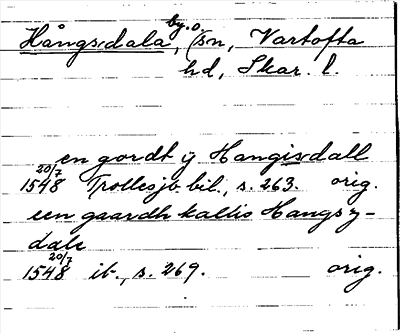 Hångsdala, by o. sn, Vartofta
hd, Skar. l.
en gordt ÿ Hangisdall
20/7 1548 Trollesjb. bil., s. 263. orig.
een gaardh kallis Hangsy-
dale
20/7 1548 ib., s. 269. orig.